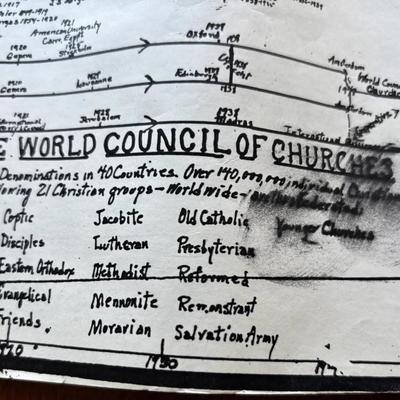 1917
1854-1920
1921
American University
Cairo, Egypt
1925
Stockholm
1937
Oxford
1920
Geneva
1920
Geneva
1927
Lausanne
Edinburgh
1937
1938
Amsterdam
World Council
Churches
1928
Jerusalem
1938
Madras
International
E WORLD COUNCIL OF CHURCHES
Denominations in 40 Countries. Over 140,000,000 individual Christians
owing 21 Christian groups - World wide -
Coptic Jacobite Old Catholic Younger Churches
Disciples Lutheran Presbyterian
Eastern Orthodox Methodist Reformed
Evangelical Mennonite Remonstrant
Friends. Moravian Salvation Army
1920 1930 19